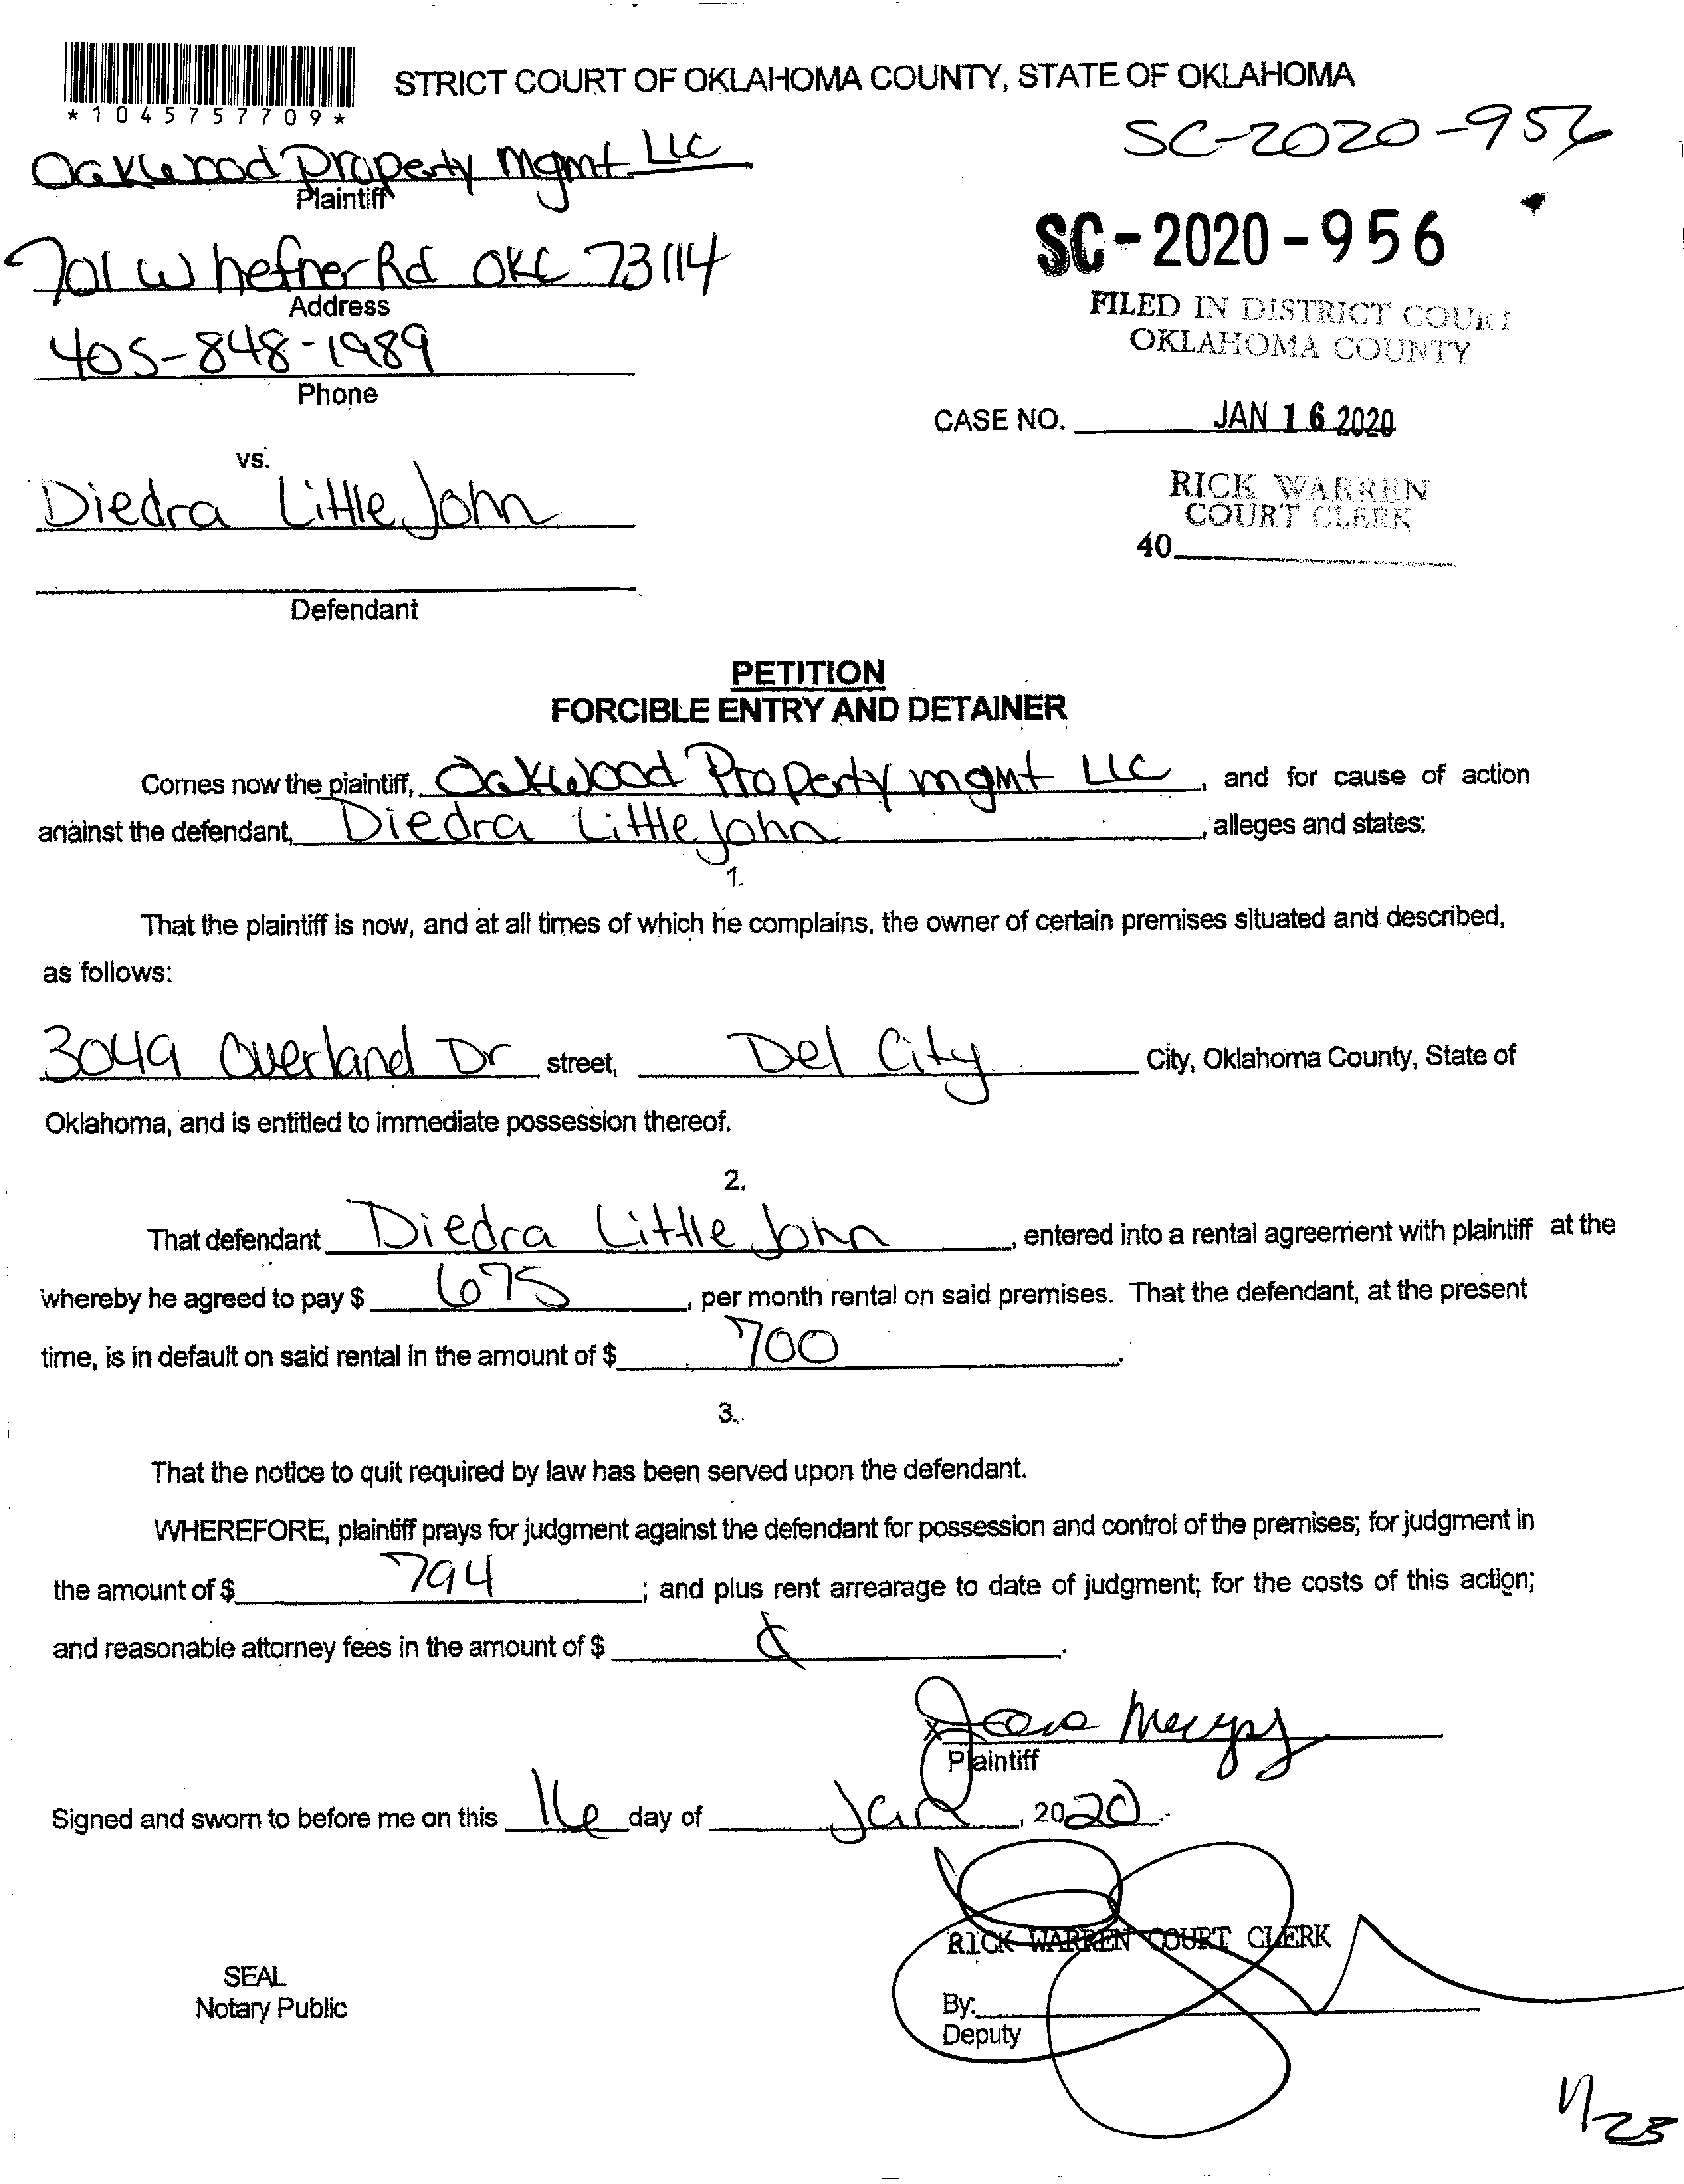 *1045757709*
STRICT COURT OF OKLAHOMA COUNTY, STATE OF OKLAHOMA
SC-2020-956
Oakwood Property Mgmt LLC
Plaintiff
SC-2020-956
701 W hefner Rd OKC 73114
Address
FILED IN DISTRICT COURT
OKLAHOMA COUNTY
405-848-1989
Phone
CASE NO. JAN 16 2020
vs.
Diedra Little John
RICK WARREN
COURT CLERK
40
Defendant
PETITION
FORCIBLE ENTRY AND DETAINER
Comes now the plaintiff, Oakwood Property mgmt LLC, and for cause of action
against the defendant, Diedra Little John, alleges and states:
1.
That the plaintiff is now, and at all times of which he complains, the owner of certain premises situated and described,
as follows:
3049 Overland Dr street, Del City City, Oklahoma County, State of
Oklahoma, and is entitled to immediate possession thereof.
2.
That defendant Diedra Little John, entered into a rental agreement with plaintiff at the
whereby he agreed to pay $ 675, per month rental on said premises. That the defendant, at the present
time, is in default on said rental in the amount of $ 700.
3.
That the notice to quit required by law has been served upon the defendant.
WHEREFORE, plaintiff prays for judgment against the defendant for possession and control of the premises; for judgment in
the amount of $ 794; and plus rent arrearage to date of judgment; for the costs of this action;
and reasonable attorney fees in the amount of $ .
Plaintiff
Signed and sworn to before me on this 16 day of Jan, 2020.
RICK WARREN COURT CLERK
SEAL
Notary Public
By:
Deputy
1/23